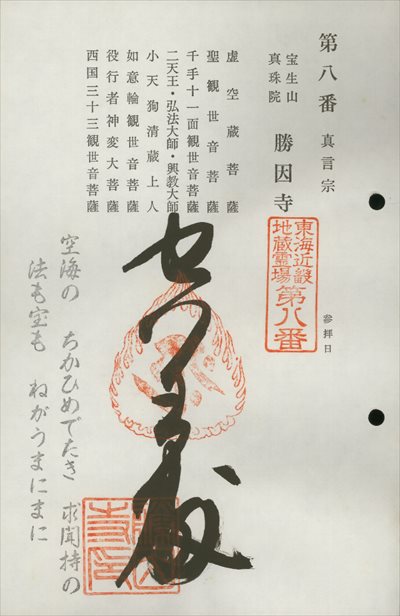 第八番 真言宗
宝生山
真珠院
勝因寺
参拝日
東海近畿
地蔵霊場
第八番
虚空蔵菩薩
聖観世音菩薩
千手十一面観世音菩薩
二天王・弘法大師・興教大師
小天狗清蔵上人
如意輪観世音菩薩
役行者神変大菩薩
西国三十三観世音菩薩
空海の ちかひめでたき 求聞持の
法も宝も ねがうまにまに